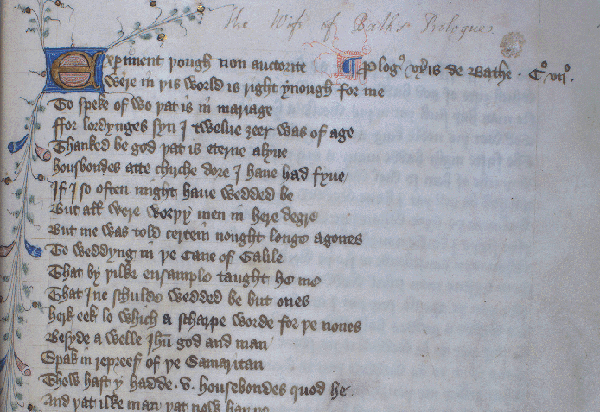 The Wife of Bath's Prologue.
Expiment þough non auctorite ¶ Plogꝰ Vxis de Bathe . Cᵒ. vijᵒ.
Were in þis world is right ynough for me
To speke of wo þat is in mariage
Ffor lordynges syn I twelue ȝeer was of age
Thanked be god þat is eterne alyue
housbondes atte chirche dore I haue had fyue
If I so often might haue wedded be
But all were worþy men in here degre
But me was told certein nought longe agones
To weddyng in þe Cane of Galile
That by þilke ensample taught he me
That I ne schulde wedded be but ones
herk eek lo which a scharpe worde for þe nones
Besyde a welle Ihu god and man
Spak in repreef of þe Samaritan
Thow hast y hadde .v. housbondes quod he
And þat ilke man þat now haþ